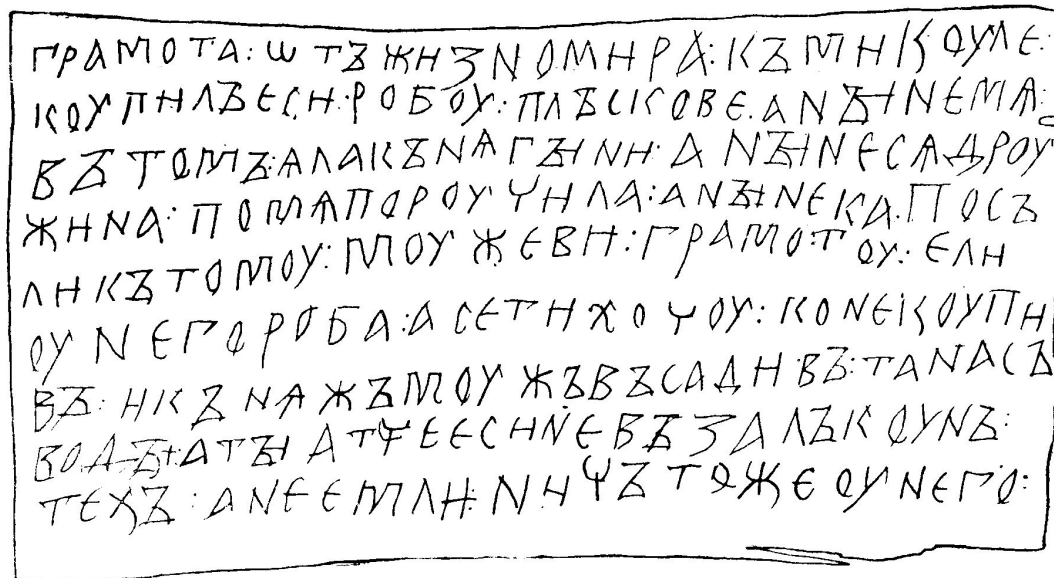 ГРАМОТА:ѠТЪЖИЗНОМИРА:КЪМИКОУЛЕ:
КОУПИЛЪЕСИ:РОБОУ:ПЛЪСКОВЕ.АНЪІНЕМѦ:
ВЪТОМЪ:АЛАКЪНѦГЪІНИ:АНЪІНЕСѦДРОУ
ЖИНА:ПОМѦПОРОУЧИЛА:АНЪІНЕКА.ПОСЪ
ЛИКЪТОМОУ:МОУЖЕВИ:ГРАМОТОУ:ЕЛИ
ОУНЕГОРОБА:АСЕТИХОЧОУ:КОНЕКОУПИ
ВЪ:ИКЪНѦЖЪМОУЖЪВЪСАДИВЪ:ТАНАСЪ
ВОДЪІ:АТЪІАТЧЕЕСИНЕВЪЗАЛЪКОУНЪ:
ТЕХЪ:АНЕЕМЛИ:НИЧЪТОЖЕОУНЕГО: